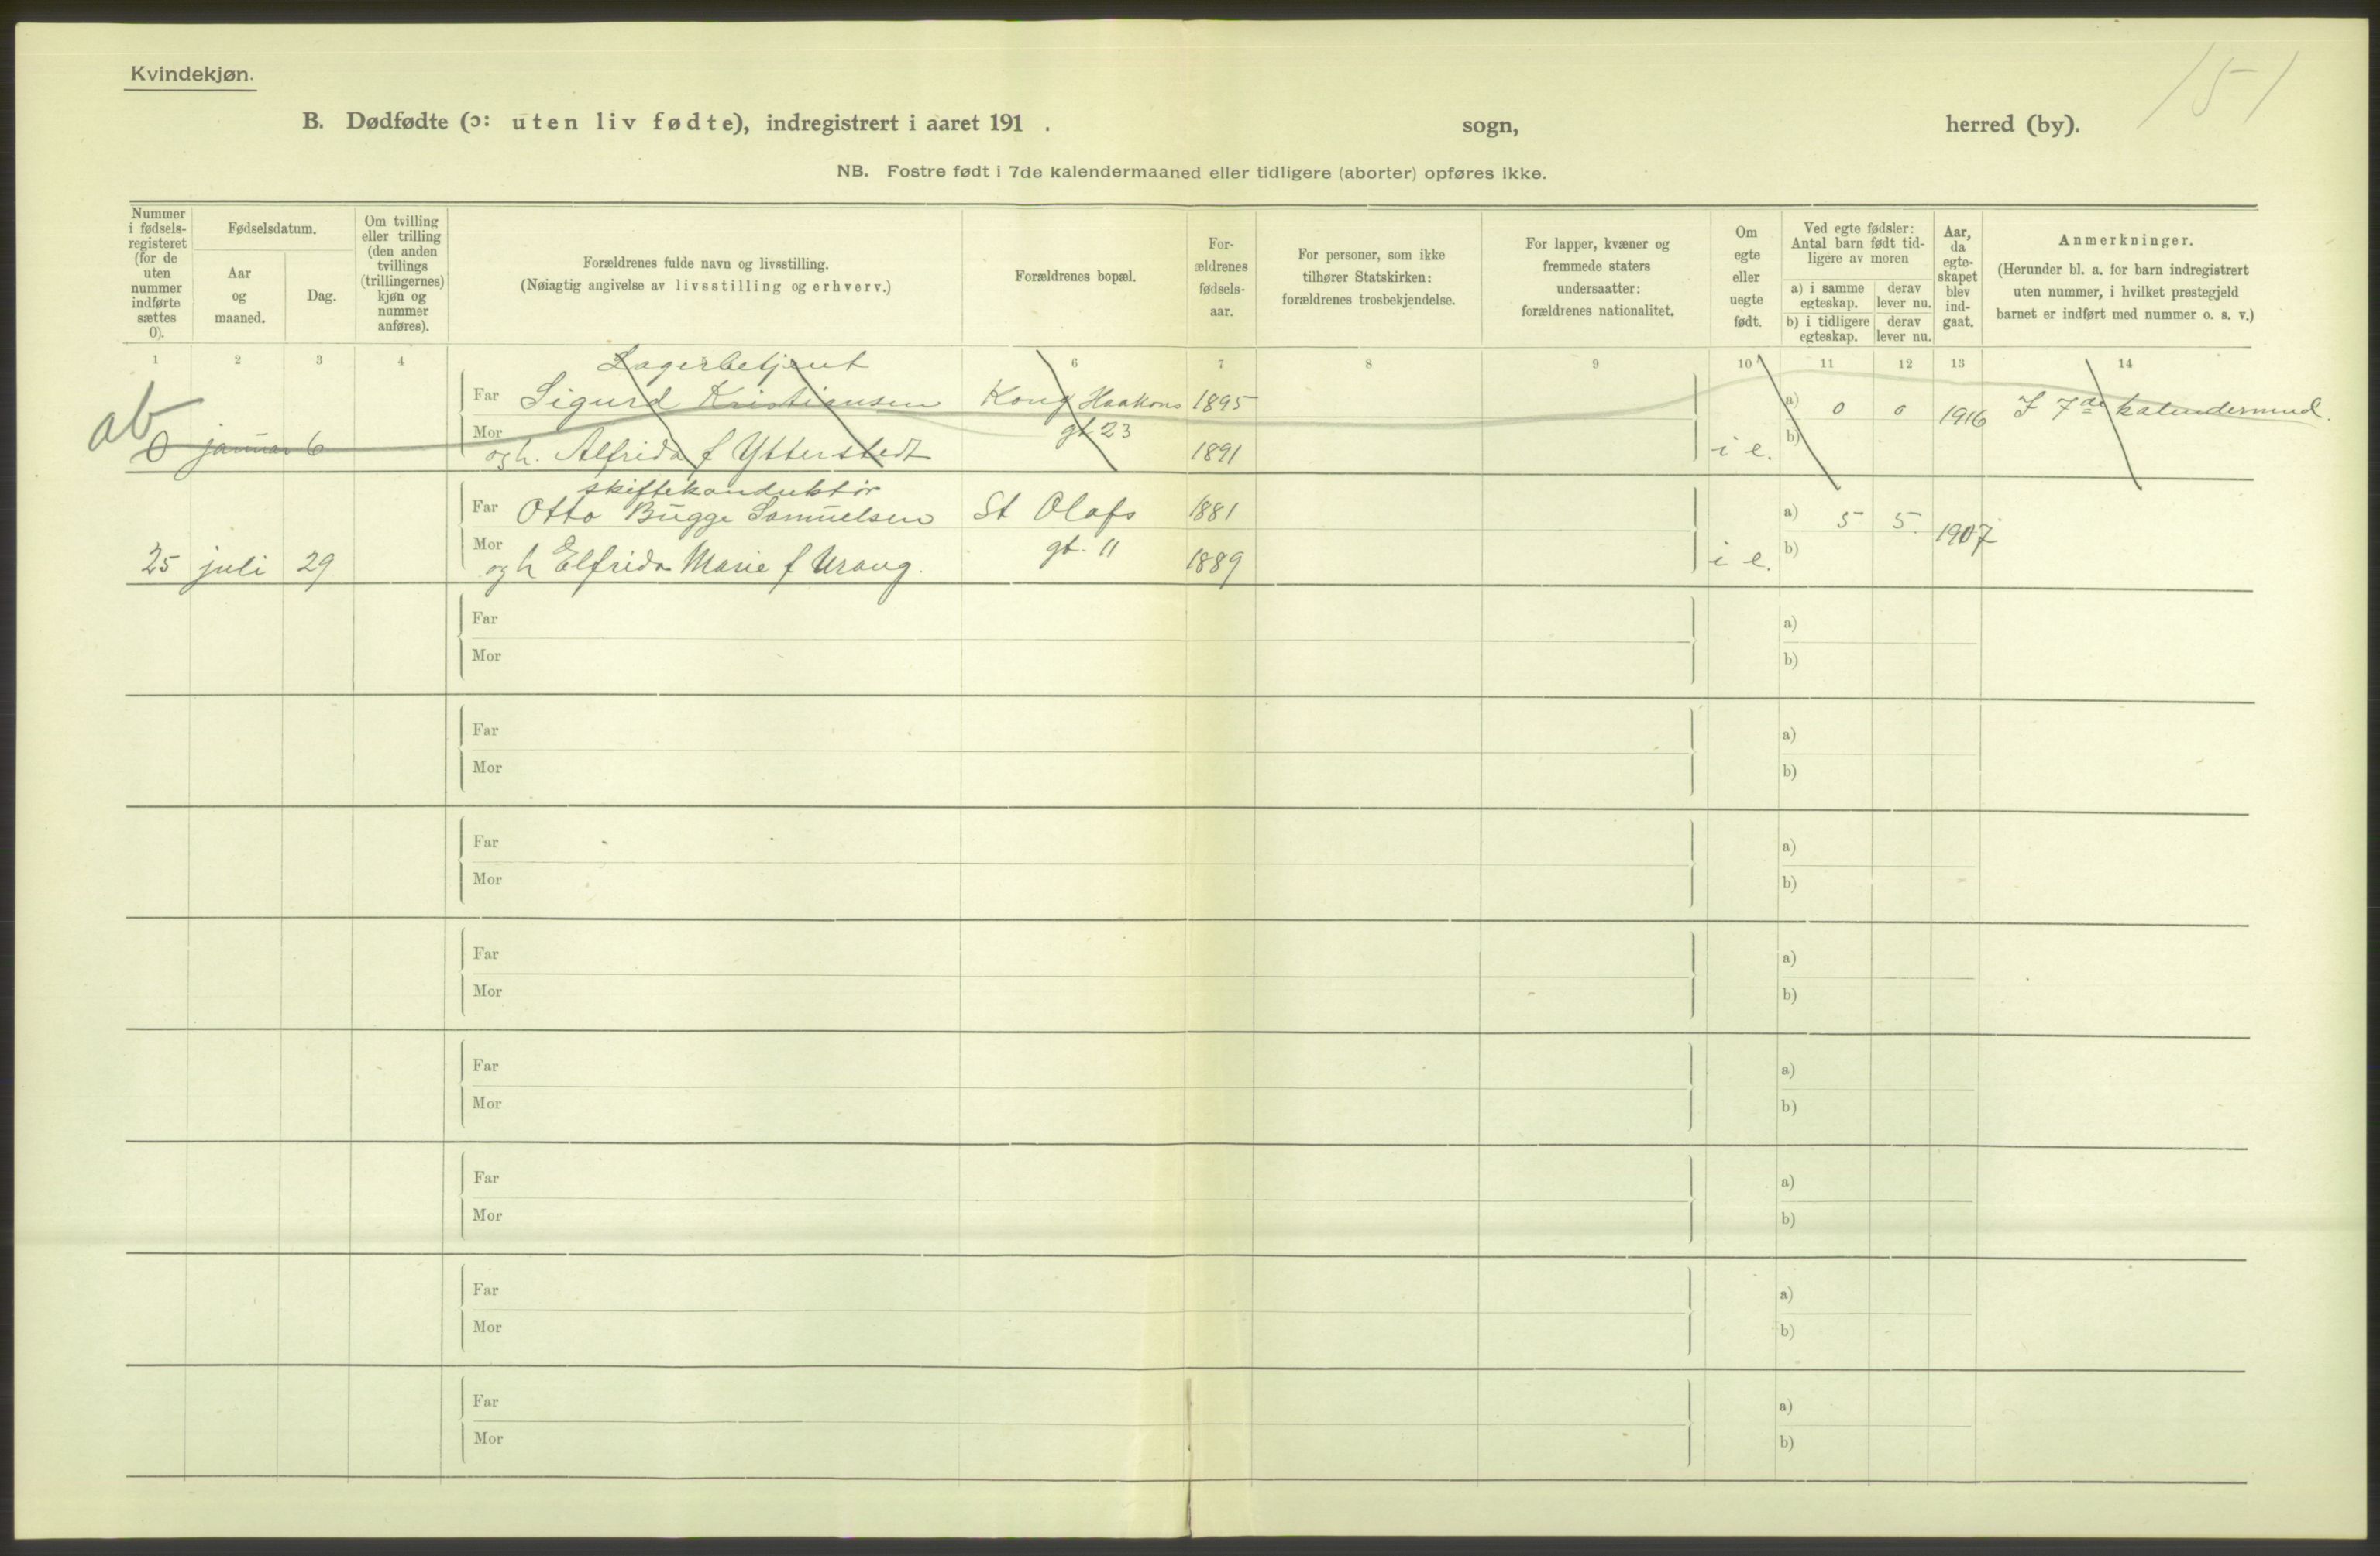 Kvindekjøn.
151
B. Dødfødte (ɔ: uten liv fødte), indregistrert i aaret 191 . sogn, herred (by).
NB. Fostre født i 7de kalendermaaned eller tidligere (aborter) opføres ikke.
Nummer i fødsels-registeret (for de uten nummer indførte sættes 0).
Fødselsdatum.
Aar og maaned.
Dag.
Om tvilling eller trilling (den anden tvillings (trillingernes) kjøn og nummer anføres).
Forældrenes fulde navn og livsstilling.
(Nøiagtig angivelse av livsstilling og erhverv.)
Forældrenes bopæl.
For-ældrenes fødsels-aar.
For personer, som ikke tilhører Statskirken: forældrenes trosbekjendelse.
For lapper, kvæner og fremmede staters undersaatter: forældrenes nationalitet.
Om egte eller uegte født.
Ved egte fødsler: Antal barn født tid-ligere av moren
a) i samme egteskap.
derav lever nu.
b) i tidligere egteskap.
derav lever nu.
Aar, da egte-skapet blev ind-gaat.
Anmerkninger.
(Herunder bl. a. for barn indregistrert uten nummer, i hvilket prestegjeld barnet er indført med nummer o. s. v.)
1 2 3 4 6 7 8 9 10 11 12 13 14
Lagerbetjent
Far Sigurd Kristiansen Kong Haakons 1895 a) 0 0 1916 I 7de kalendermnd.
ab
0 januar 6 Mor og h. Alfrida f Ytterstedt gt 23 1891 i e. b)
skiftekonduktör
Far Otto Bugge Samuelsen St Olafs 1881 a) 5 5. 1907
25 juli 29 Mor og h Elfrida Marie f Urang. gt. 11 1889 i e. b)
Far a)
Mor b)
Far a)
Mor b)
Far a)
Mor b)
Far a)
Mor b)
Far a)
Mor b)
Far a)
Mor b)
Far a)
Mor b)
Far a)
Mor b)